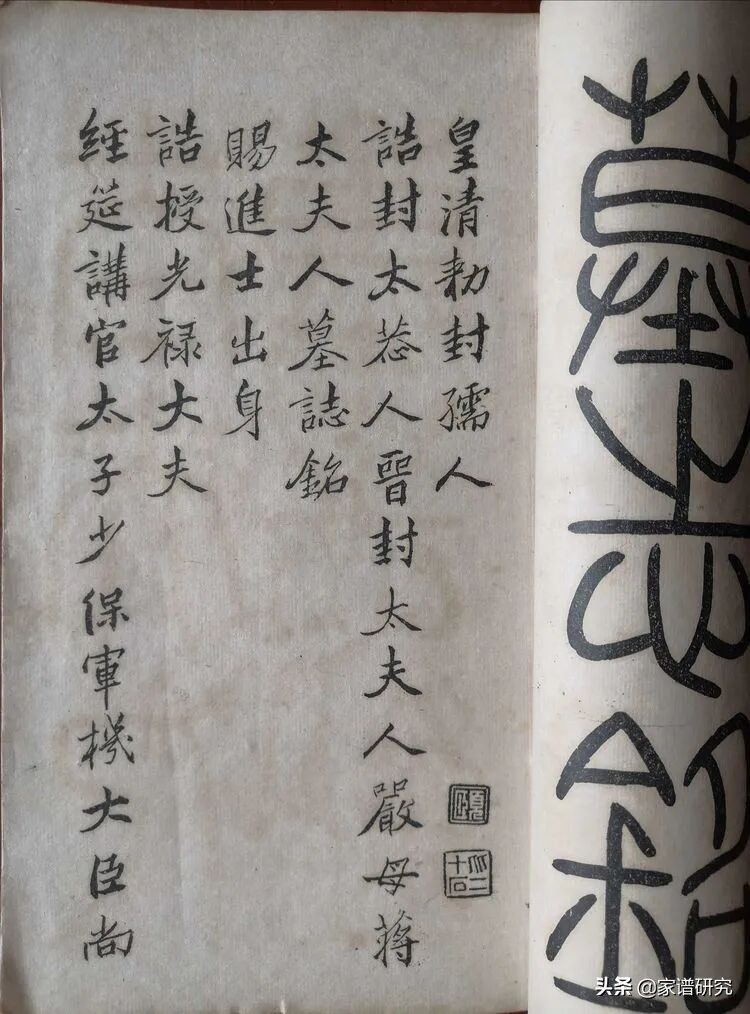 墓志銘
皇清勅封孺人
誥封太恭人晉封太夫人嚴母蔣
太夫人墓誌銘
賜進士出身
誥授光禄大夫
經筵講官太子少保軍機大臣尚
头条 @家谱研究